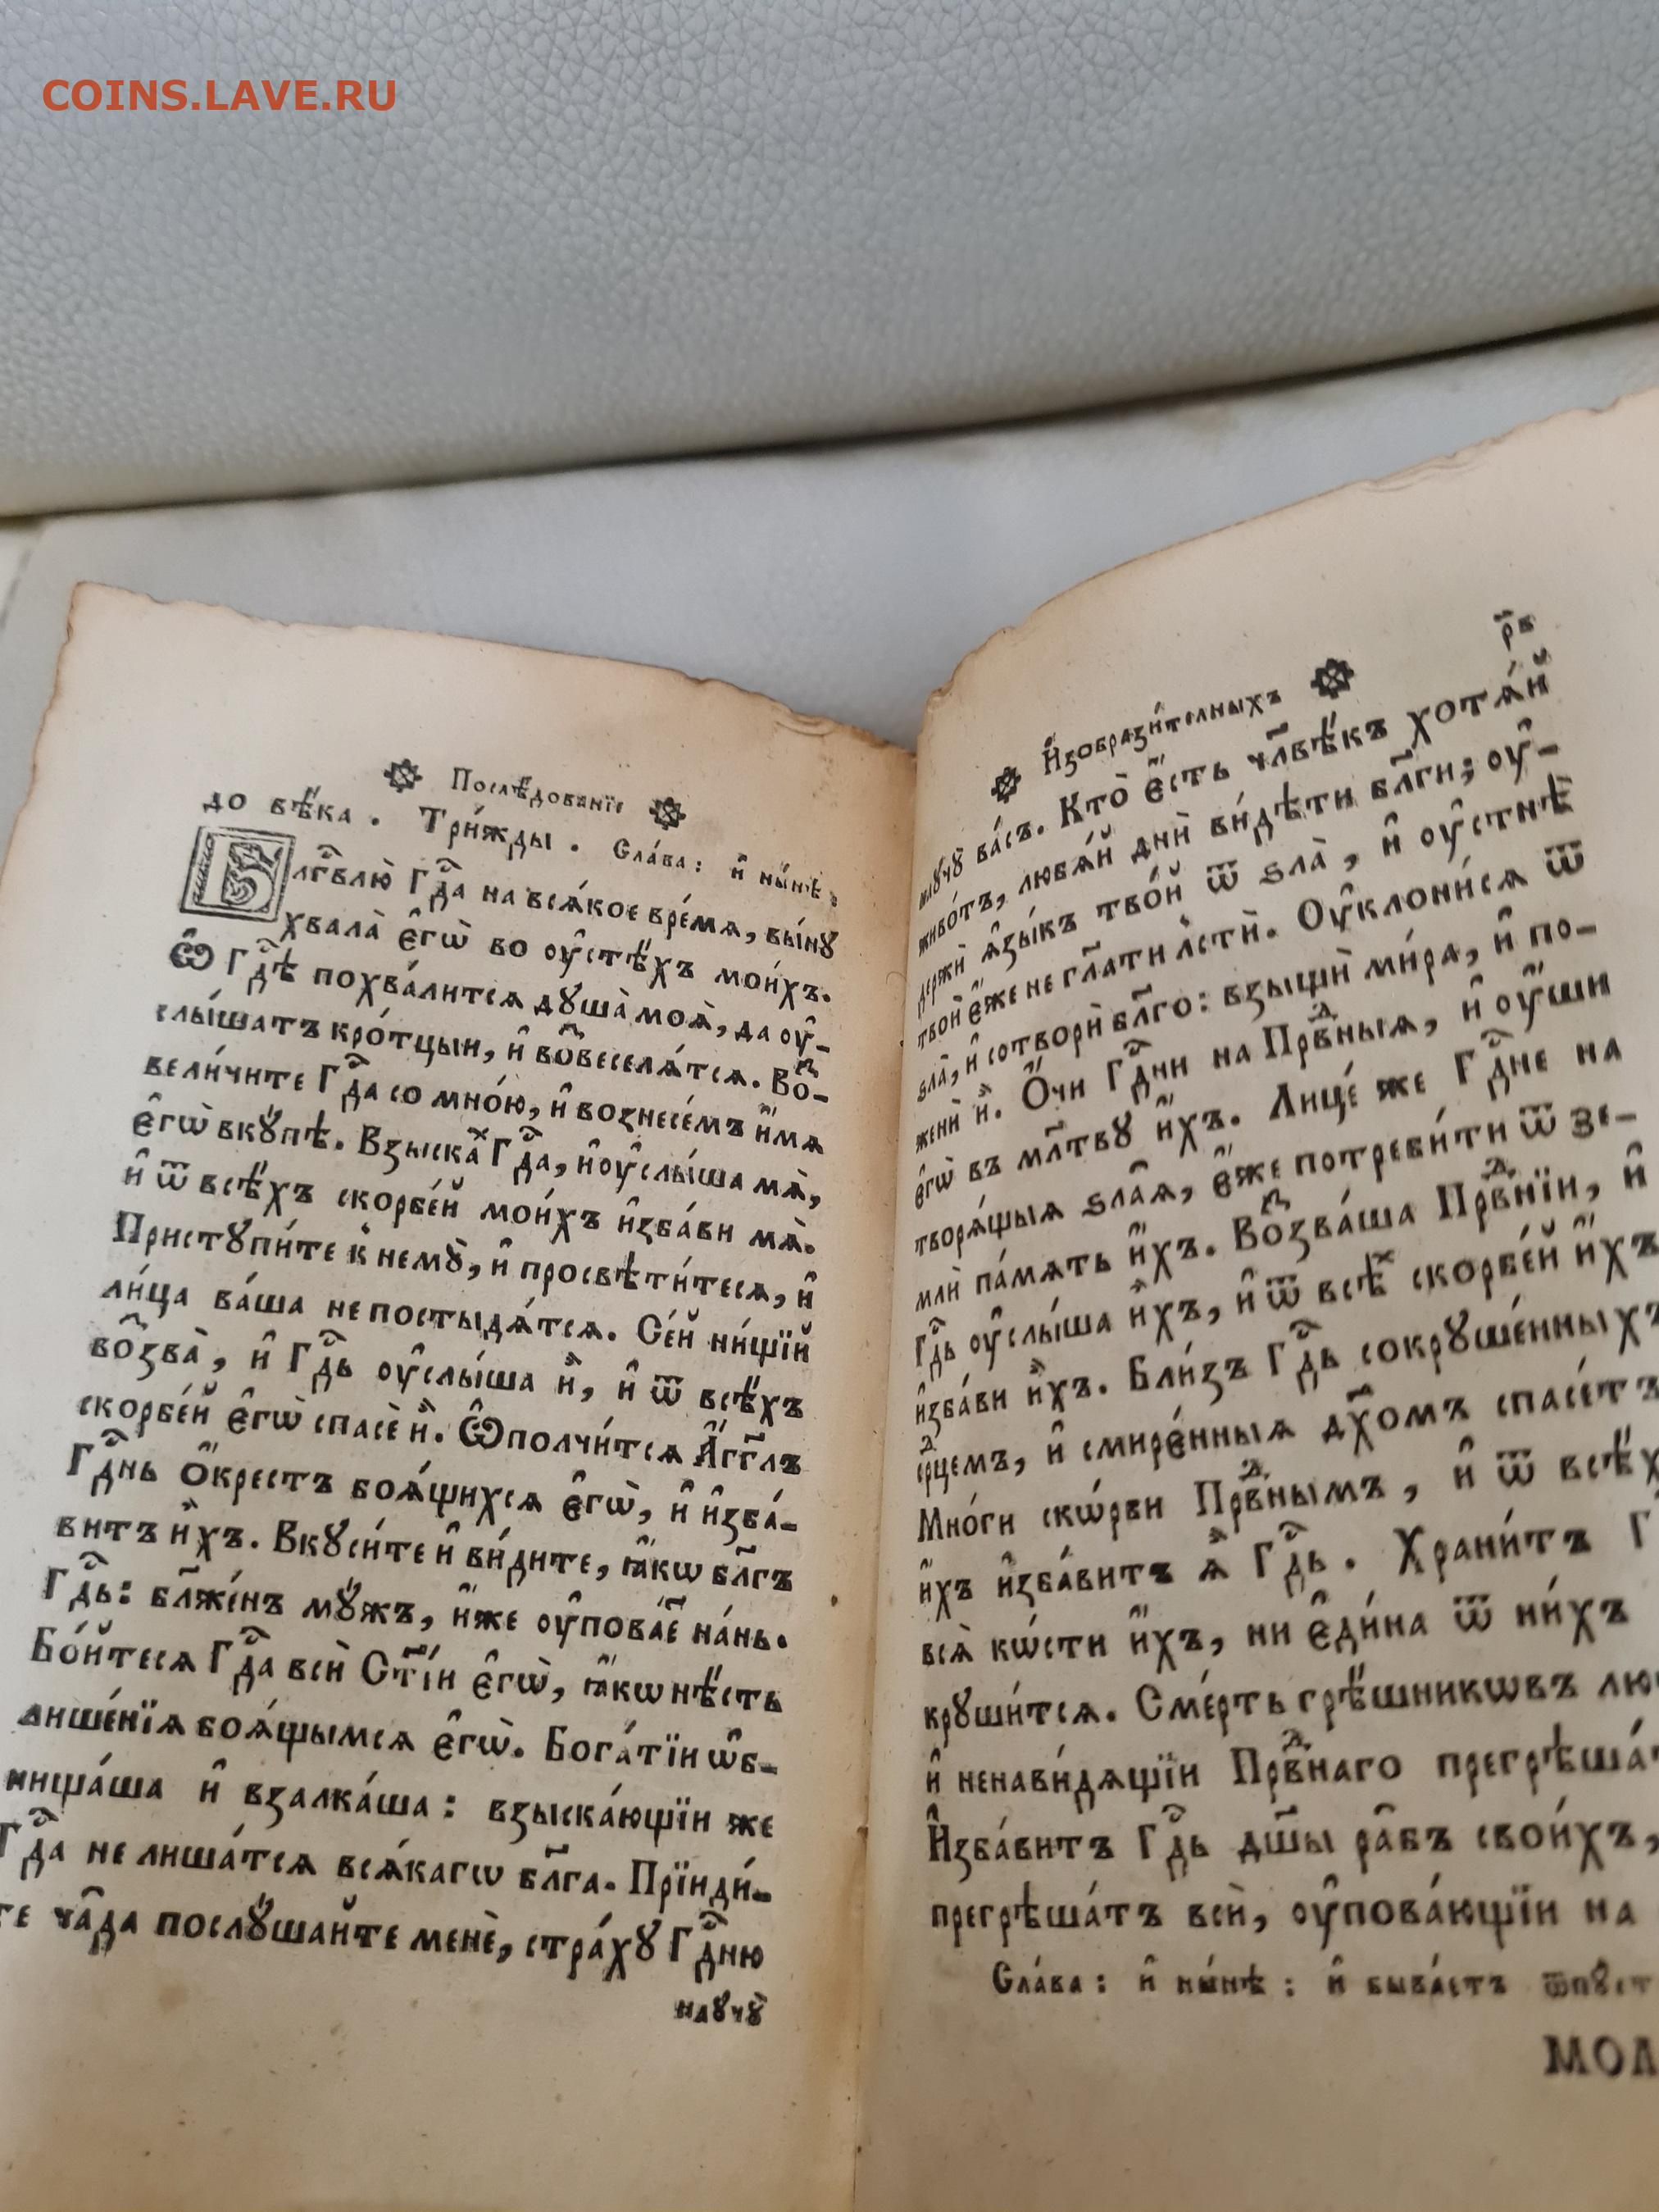 COINS.LAVE.RU
Послѣ́дованїе
до вѣ́ка. Три́жды. Сла́ва: и҆ ны́нѣ:
Бл҃гвлю̀ Гдⷭ҇а на всѧ́кое вре́мѧ, вы́нꙋ
хвала̀ є҆гѡ̀ во оу҆стѣ́хъ мои́хъ.
Ѽ Гдⷭ҇ѣ похва́литсѧ дꙋша̀ моѧ̀, да оу҆-
слы́шатъ кро́тцыи, и҆ во҆звеселѧ́тсѧ. Воз-
вели́чите Гдⷭ҇а со мно́ю, и҆ вознесе́мъ и҆́мѧ
є҆гѡ̀ вкꙋ́пѣ. Взыскаⷯ Гдⷭ҇а, и҆ оу҆слы́ша мѧ̀,
и҆ ѿ всѣ́хъ скорбе́й мои́хъ и҆зба́ви мѧ̀.
Пристꙋпи́те к̾ немꙋ̀, и҆ просвѣти́тесѧ, и҆
ли́ца ва́ша не постыдѧ́тсѧ. Се́й ни́щїй
воззва̀, и҆ Гдⷭ҇ь оу҆слы́ша и҆̀, и҆ ѿ всѣ́хъ
скорбе́й є҆гѡ̀ спасѐ и҆̀. Ѽполчи́тсѧ А҆́гг҃лъ
Гдⷭ҇нь ѻ҆́крестъ боѧ́щихсѧ є҆гѡ̀, и҆ и҆зба́-
витъ и҆̀хъ. Вкꙋси́те и҆ ви́дите, ꙗ҆́кѡ бл҃гъ
Гдⷭ҇ь: бл҃же́нъ мꙋ́жъ, и҆́же оу҆пова́е҃ на́нь.
Бо́йтесѧ Гдⷭ҇а всѝ Ст҃і́и є҆гѡ̀, ꙗ҆́кѡ нѣ́сть
лише́нїѧ боѧ́щымсѧ є҆гѡ̀. Бога́тїи ѡ҆б-
нища́ша и҆ взалка́ша: взыска́ющїи же
Гдⷭ҇а не лиша́тсѧ всѧ́кагѡ бл҃га. Прїиди́-
те ча̑да послꙋ́шайте менѐ, стра́хꙋ Гдⷭ҇ню
наꙋчꙋ̀
рв҃
И҆зобрази́телныхъ
наꙋчꙋ̀ ва́съ. Кто̀ є҆́сть чл҃вѣ́къ хотѧ́й
живо́тъ, любѧ́й днѝ ви́дѣти бл҃ги; оу҆-
держѝ ѧ҆зы́къ тво́й ѿ ѕла̀, и҆ оу҆стнѣ̀
твоѝ є҆́же не гл҃ати лстѝ. Оу҆клони́сѧ ѿ
ѕла̀, и҆ сотворѝ бл҃го: взыщѝ ми́ра, и҆ по-
женѝ и҆̀. Ѻ҆́чи Гдⷭ҇ни на Прⷣв҃ныѧ, и҆ оу҆́ши
є҆гѡ̀ въ мл҃твꙋ и҆́хъ. Лице́ же Гдⷭ҇не на
творѧ́щыѧ ѕла̑ѧ, є҆́же потреби́ти ѿ зе-
млѝ па́мѧть и҆́хъ. Воззва́ша Прⷣв҃нїи, и҆
Гдⷭ҇ь оу҆слы́ша и҆̀хъ, и҆ ѿ всѣⷯ скорбе́й и҆́хъ
и҆зба́ви и҆̀хъ. Бли́зъ Гдⷭ҇ь сокрꙋше́нныхъ
срⷣцемъ, и҆ смире́нныѧ дх҃омъ спасе́тъ
Мно́ги скѡ́рби Прⷣв҃нымъ, и҆ ѿ всѣ́х
и҆́хъ и҆зба́витъ ѧ҆̀ Гдⷭ҇ь. Храни́тъ Г
всѧ̀ кѡ́сти и҆́хъ, ни є҆ди́на ѿ ни́хъ
крꙋши́тсѧ. Сме́рть грѣ́шникѡвъ лю
и҆ ненави́дѧщїи Прⷣв҃наго прегрѣша́т
И҆зба́витъ Гдⷭ҇ь дш҃ы ра̑бъ свои́хъ,
прегрѣша́тъ всѝ, оу҆пова́ющїи на
Сла́ва: и҆ ны́нѣ: и҆ быва́етъ ѿпꙋст
МОЛ